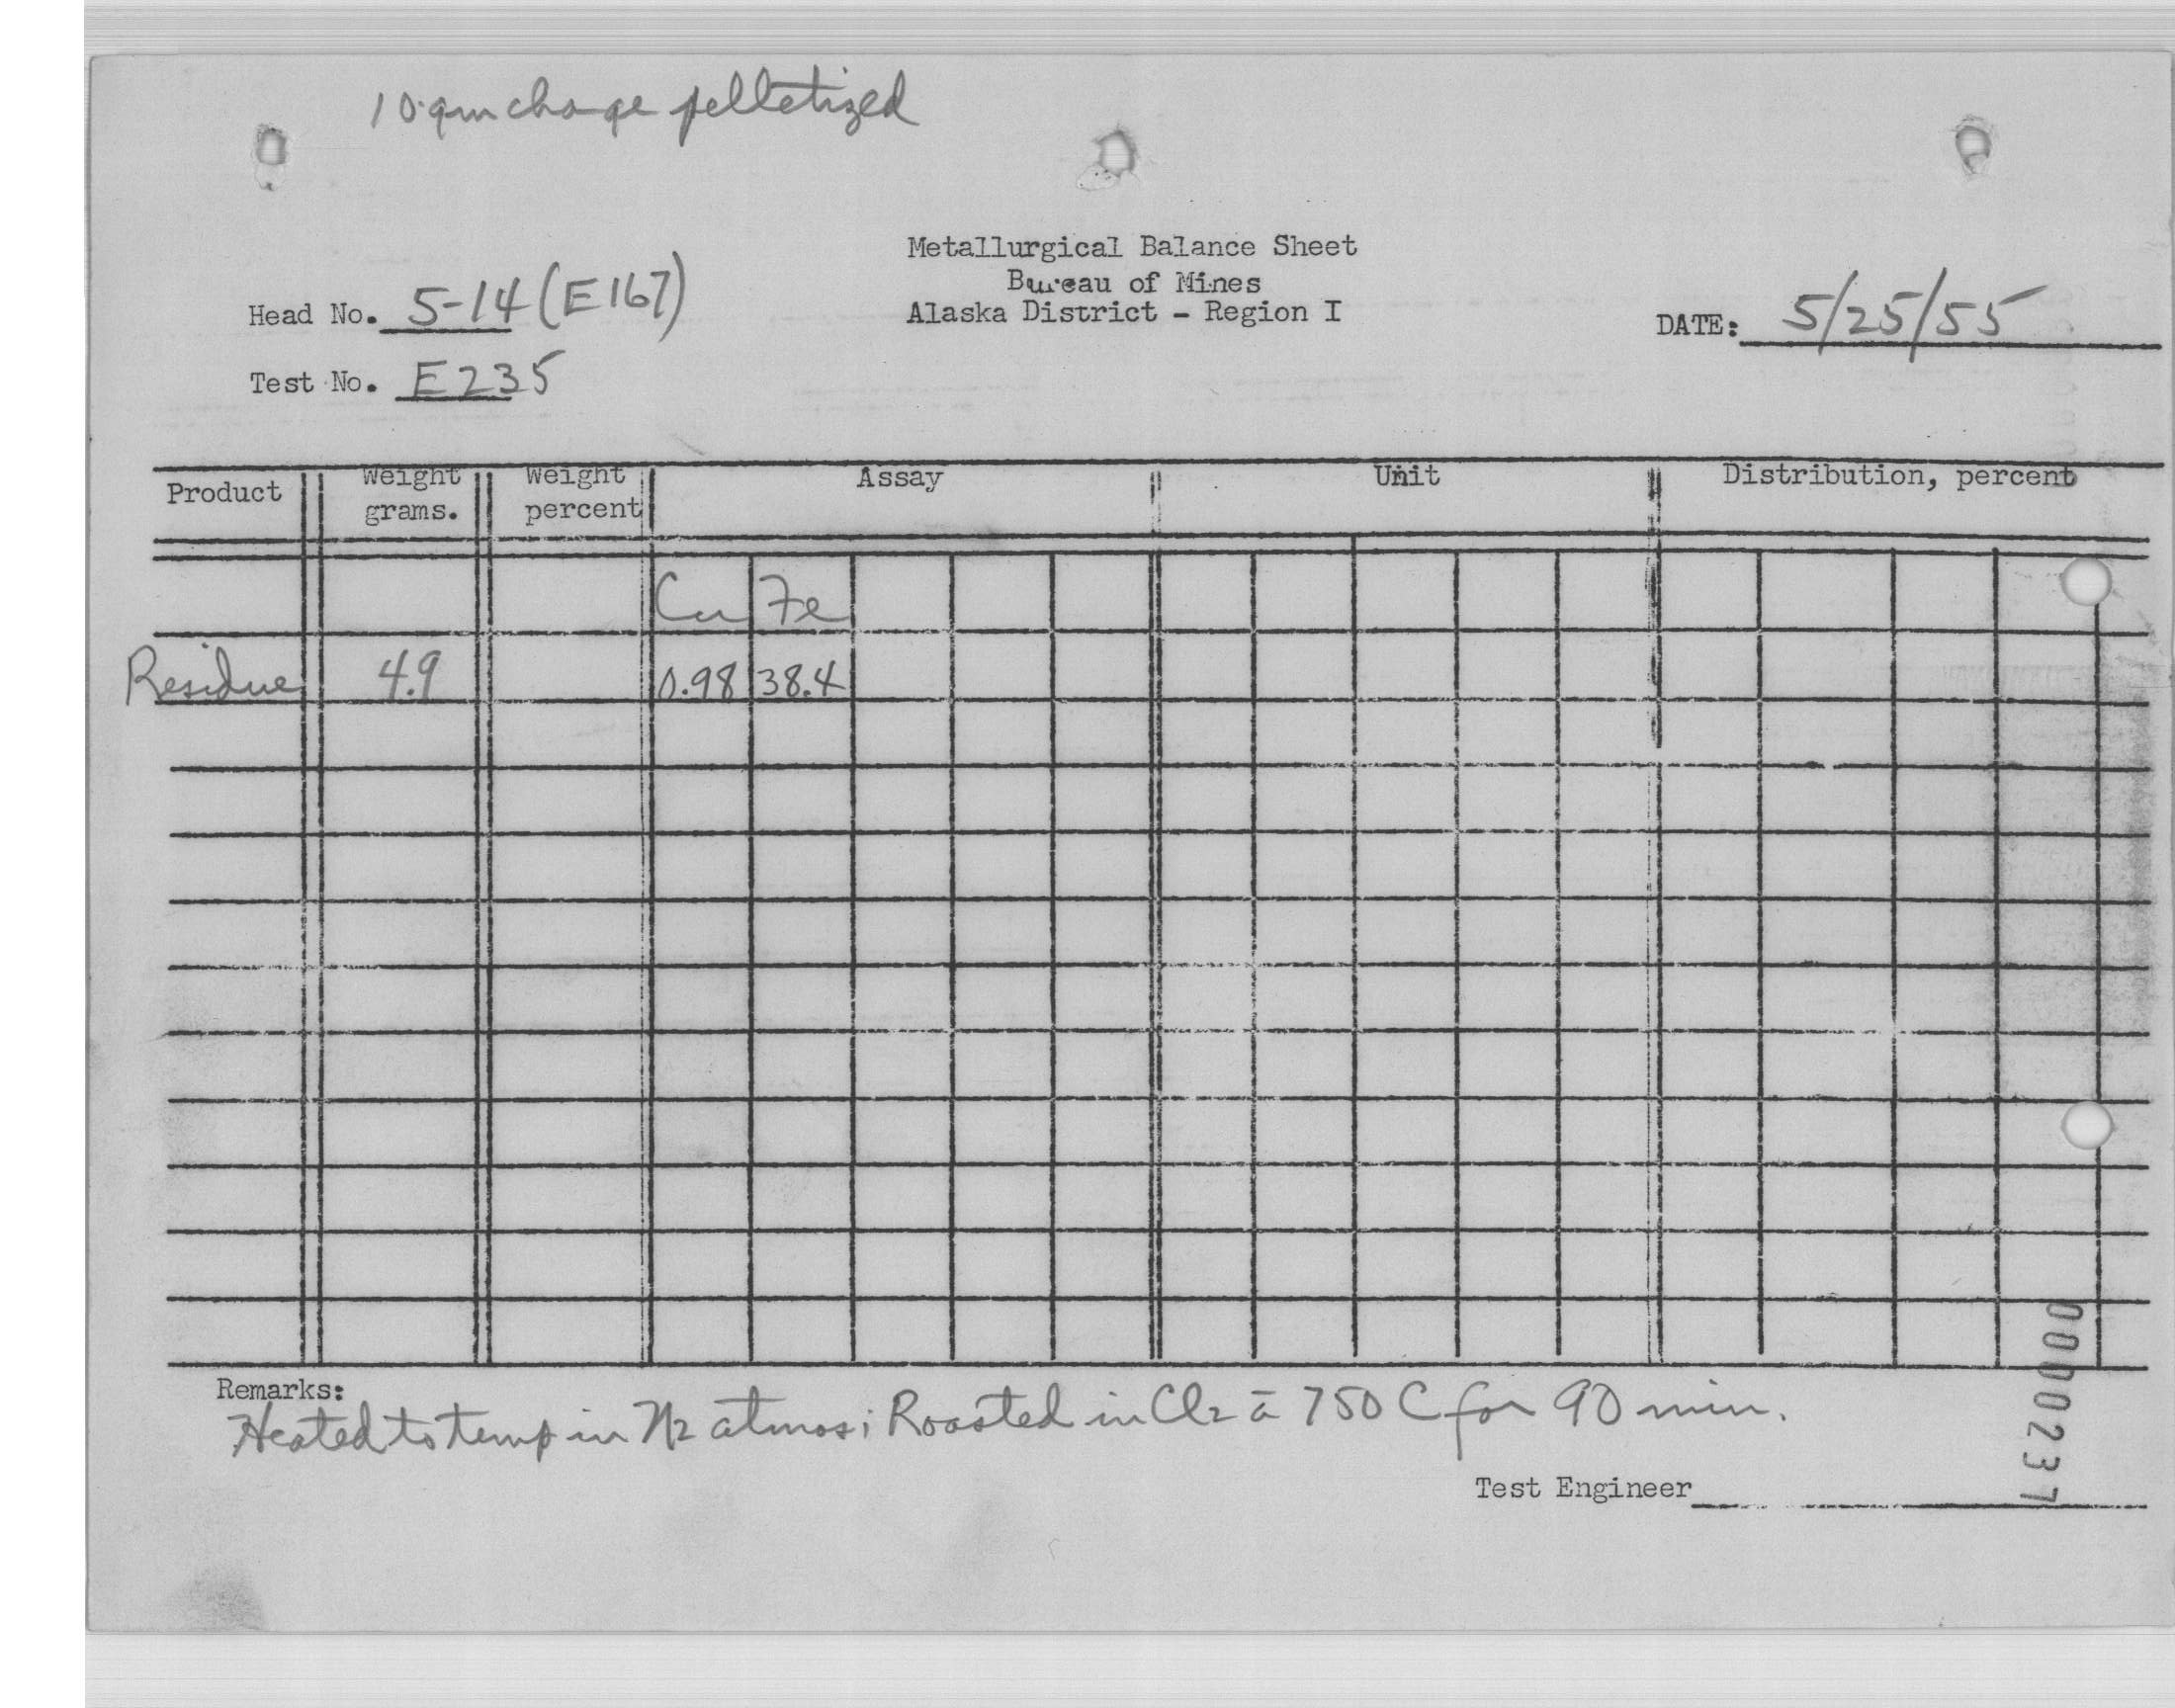 10 gm charge pelletized
Metallurgical Balance Sheet
Bureau of Mines
Alaska District - Region I
Head No. 5-14 (E167)
DATE: 5/25/55
Test No. E235
Product Weight grams. Weight percent Assay Unit Distribution, percent
Cu Fe
Residue 4.9 0.98 38.4
Remarks:
Heated to temp in N2 atmos; Roasted in Cl2 ā 750 C for 90 min.
Test Engineer
0000237